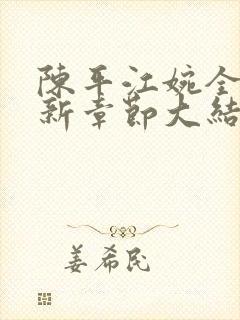 陳平江婉全
新章節大結
姜希民